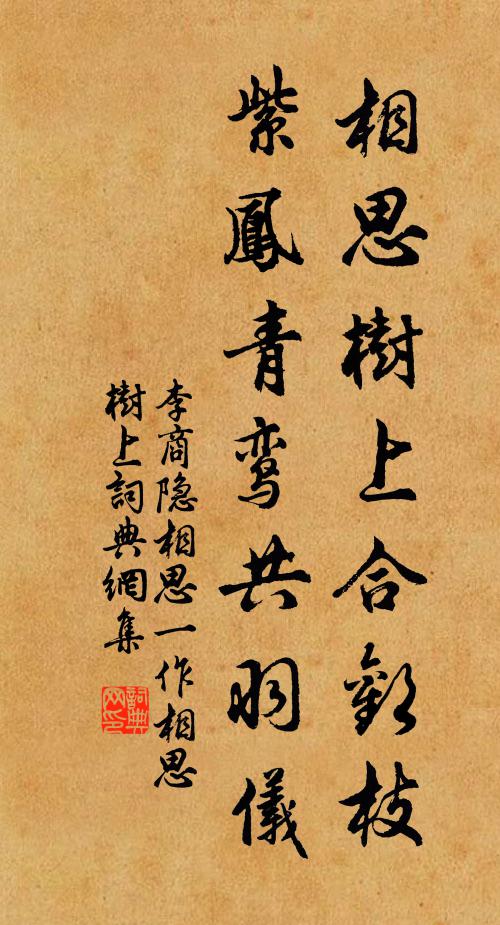 相思樹上合歡枝
紫鳳青鸾共羽儀
李商隐相思一作相思
樹上詞典網集
詞典網印